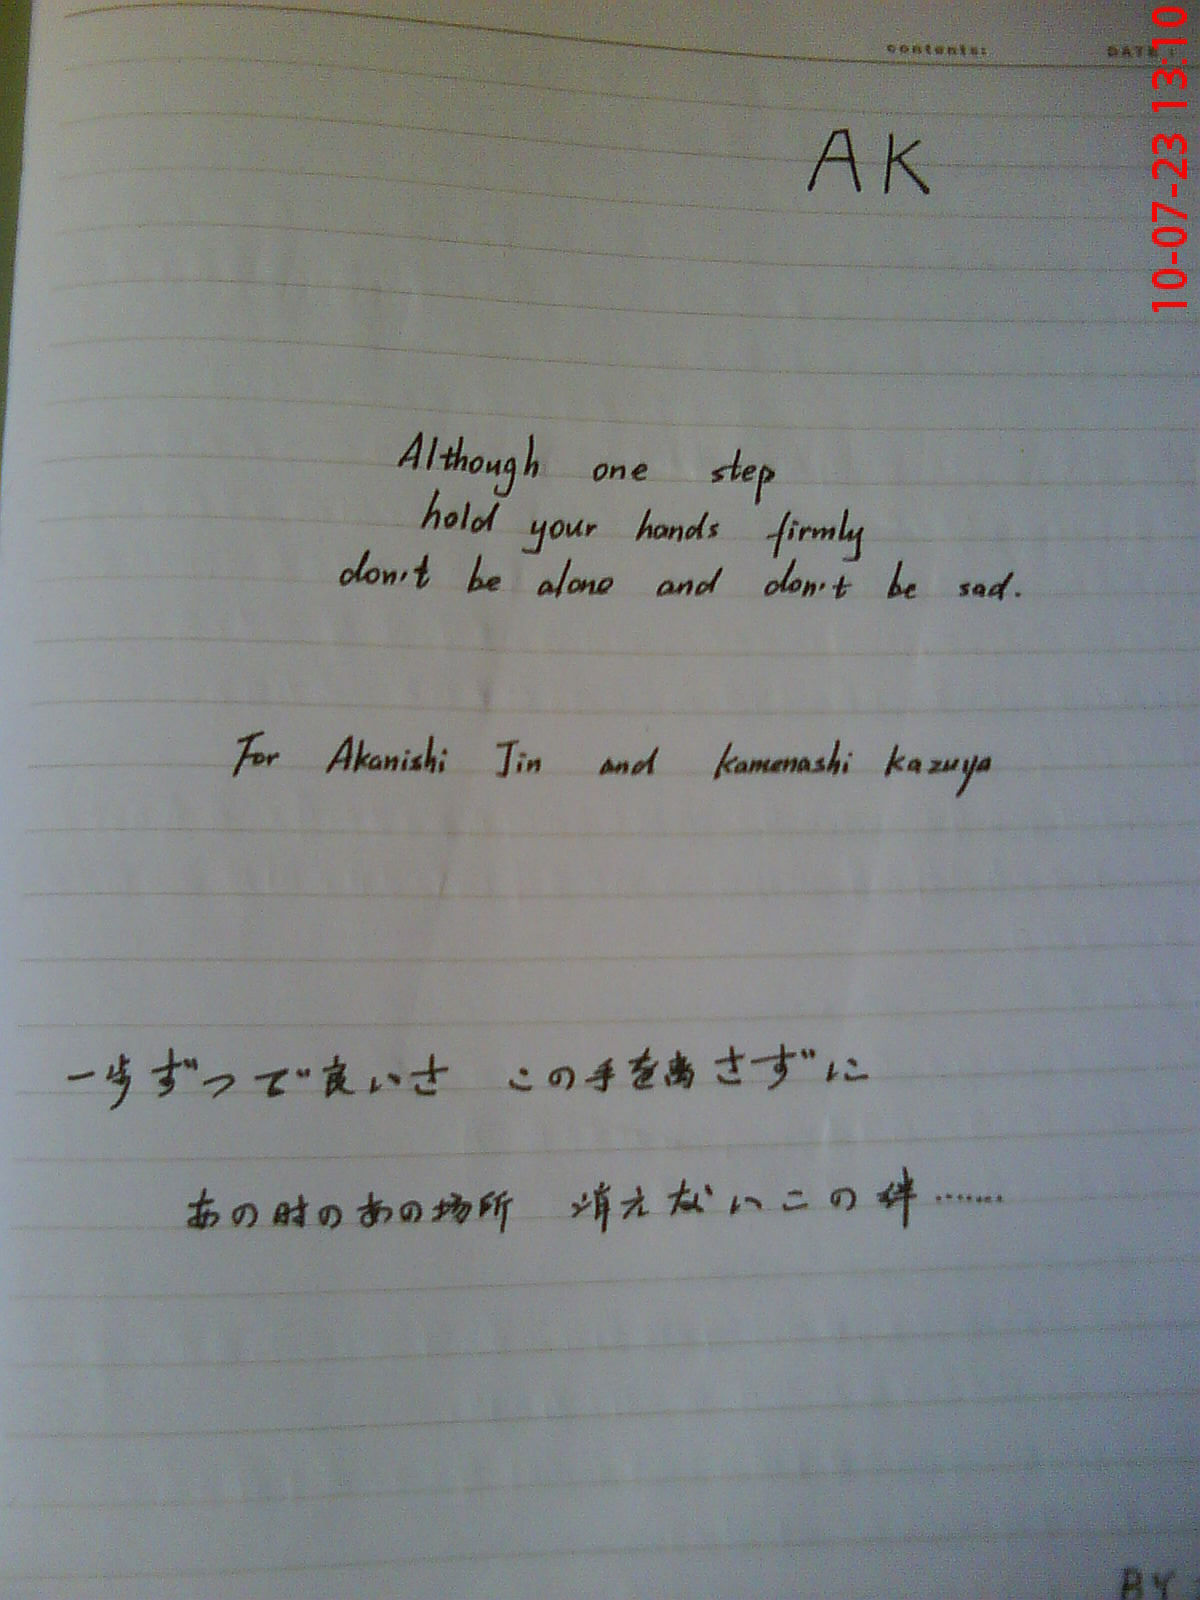 contents: DATE :
10-07-23 13:10
AK
Although one step
hold your hands firmly
don't be alone and don't be sad.
For Akanishi Jin and kamenashi kazuya
一歩ずつで良いさ この手を离さずに
あの时のあの場所 消えないこの絆.......
BY